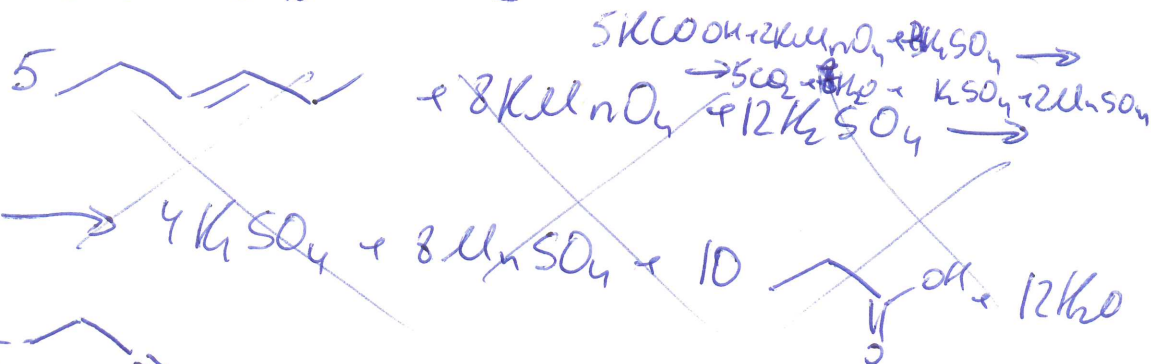 5HCOOH+2KMnO₄+3H₂SO₄ →
→5CO₂+8H₂O+ K₂SO₄+2MnSO₄
5 + 8KMnO₄ +12H₂SO₄ →
→ 4K₂SO₄ + 8MnSO₄ + 10 OH + 12H₂O
O